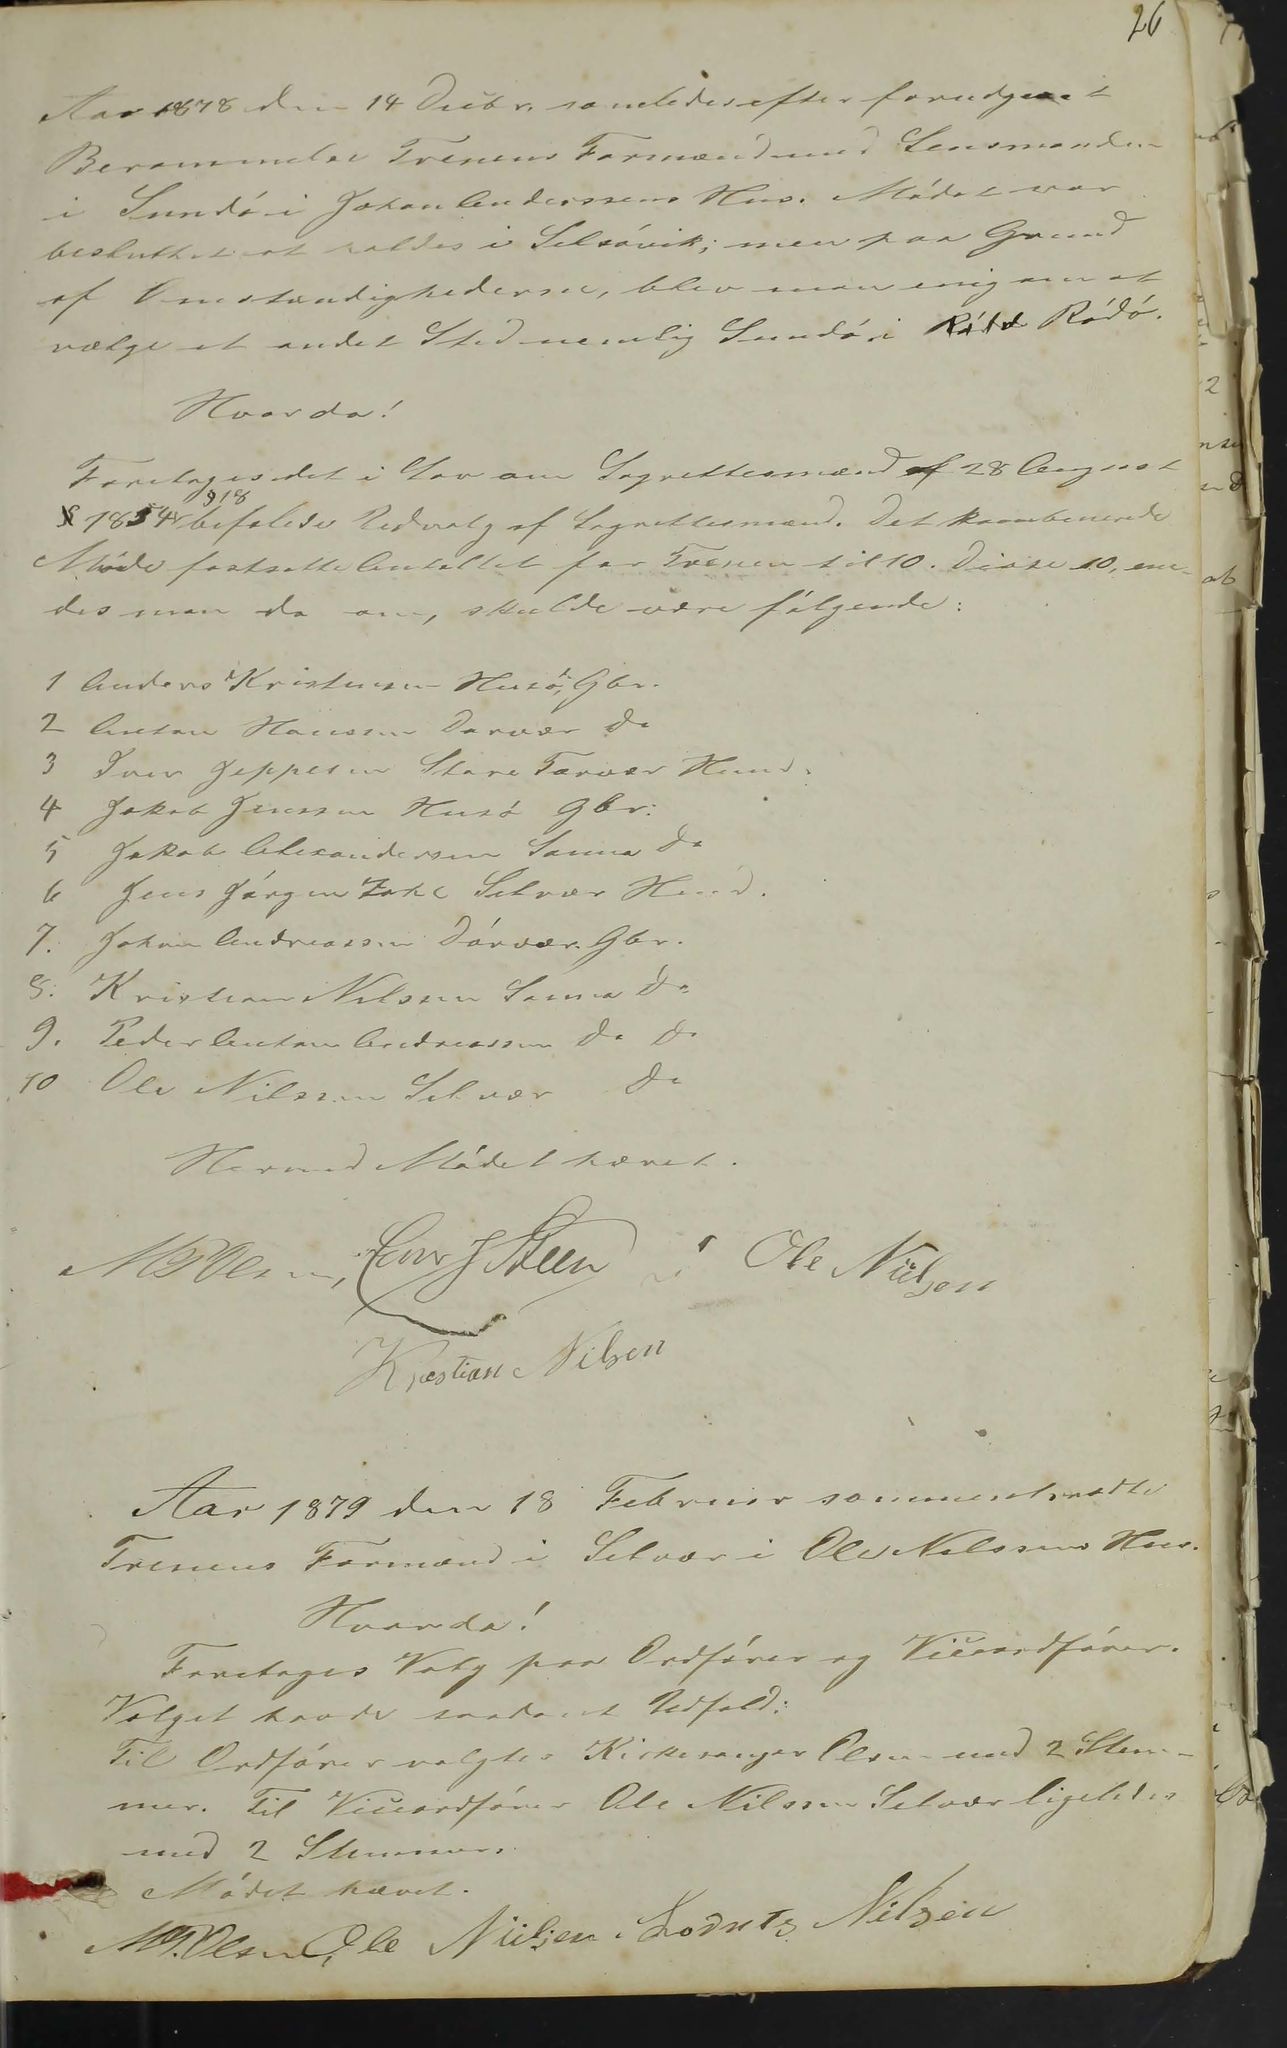 26
Aar 1878 den 14 Decbr. samledes efter forudgaaet
Berammelse Trænens Formænd med Lensmanden
i Sundö i Johan Anderssens Hus. Mödet var
besluttet at holdes i Selsövik; men paa Grund
af Omstændighederne, blev man enig om at
vælge et andet Sted nemlig Sundö i Rödö.
Hvorda!
Foretoges det i Lov om Lagrettesmænd af 28 August
1854 § 18 befalede Udvalg af Lagrettesmænd. Det kombinerede
Möde fastsatte Antallet for Trænen til 10. Disse 10, ene-
des man da om, skulde være fölgende:
1 Anders Kristensen Husö, Gbr.
2 Anton Hansen Dorvær do
3 Iver Jeppesen Store Tærvær Huusd.
4 Jakob Jenssen Husö Gbr.
5 Jakob Alexandersen Sanna do
6 Jens Jörgen Zahl Selvær Huusd.
7. Johan Andreassen Dörvær. Gbr.
8. Kristian Nilssen Sanna do
9. Peder Anton Andreassen do do
10 Ole Nilssen Selvær do
Hermed Mödet hævet.
M Olsen, J Steen Ole Nilsen
Kristian Nilsen
Aar 1879 den 18 Februar sammentraadte
Trænens Formænd i Selvær i Ole Nilssens Hus.
Hvorda!
Foretoges Valg paa Ordförer og Viceordförer.
Valget havde saadant Udfald:
Til Ordförer valgtes Kirkesanger Olsen med 2 Stem-
mer. Til Viceordförer Ole Nilssen Selvær ligeledes
med 2 Stemmer.
Mödet hævet.
M Olsen, Ole Nilsen Lornts Nilsen